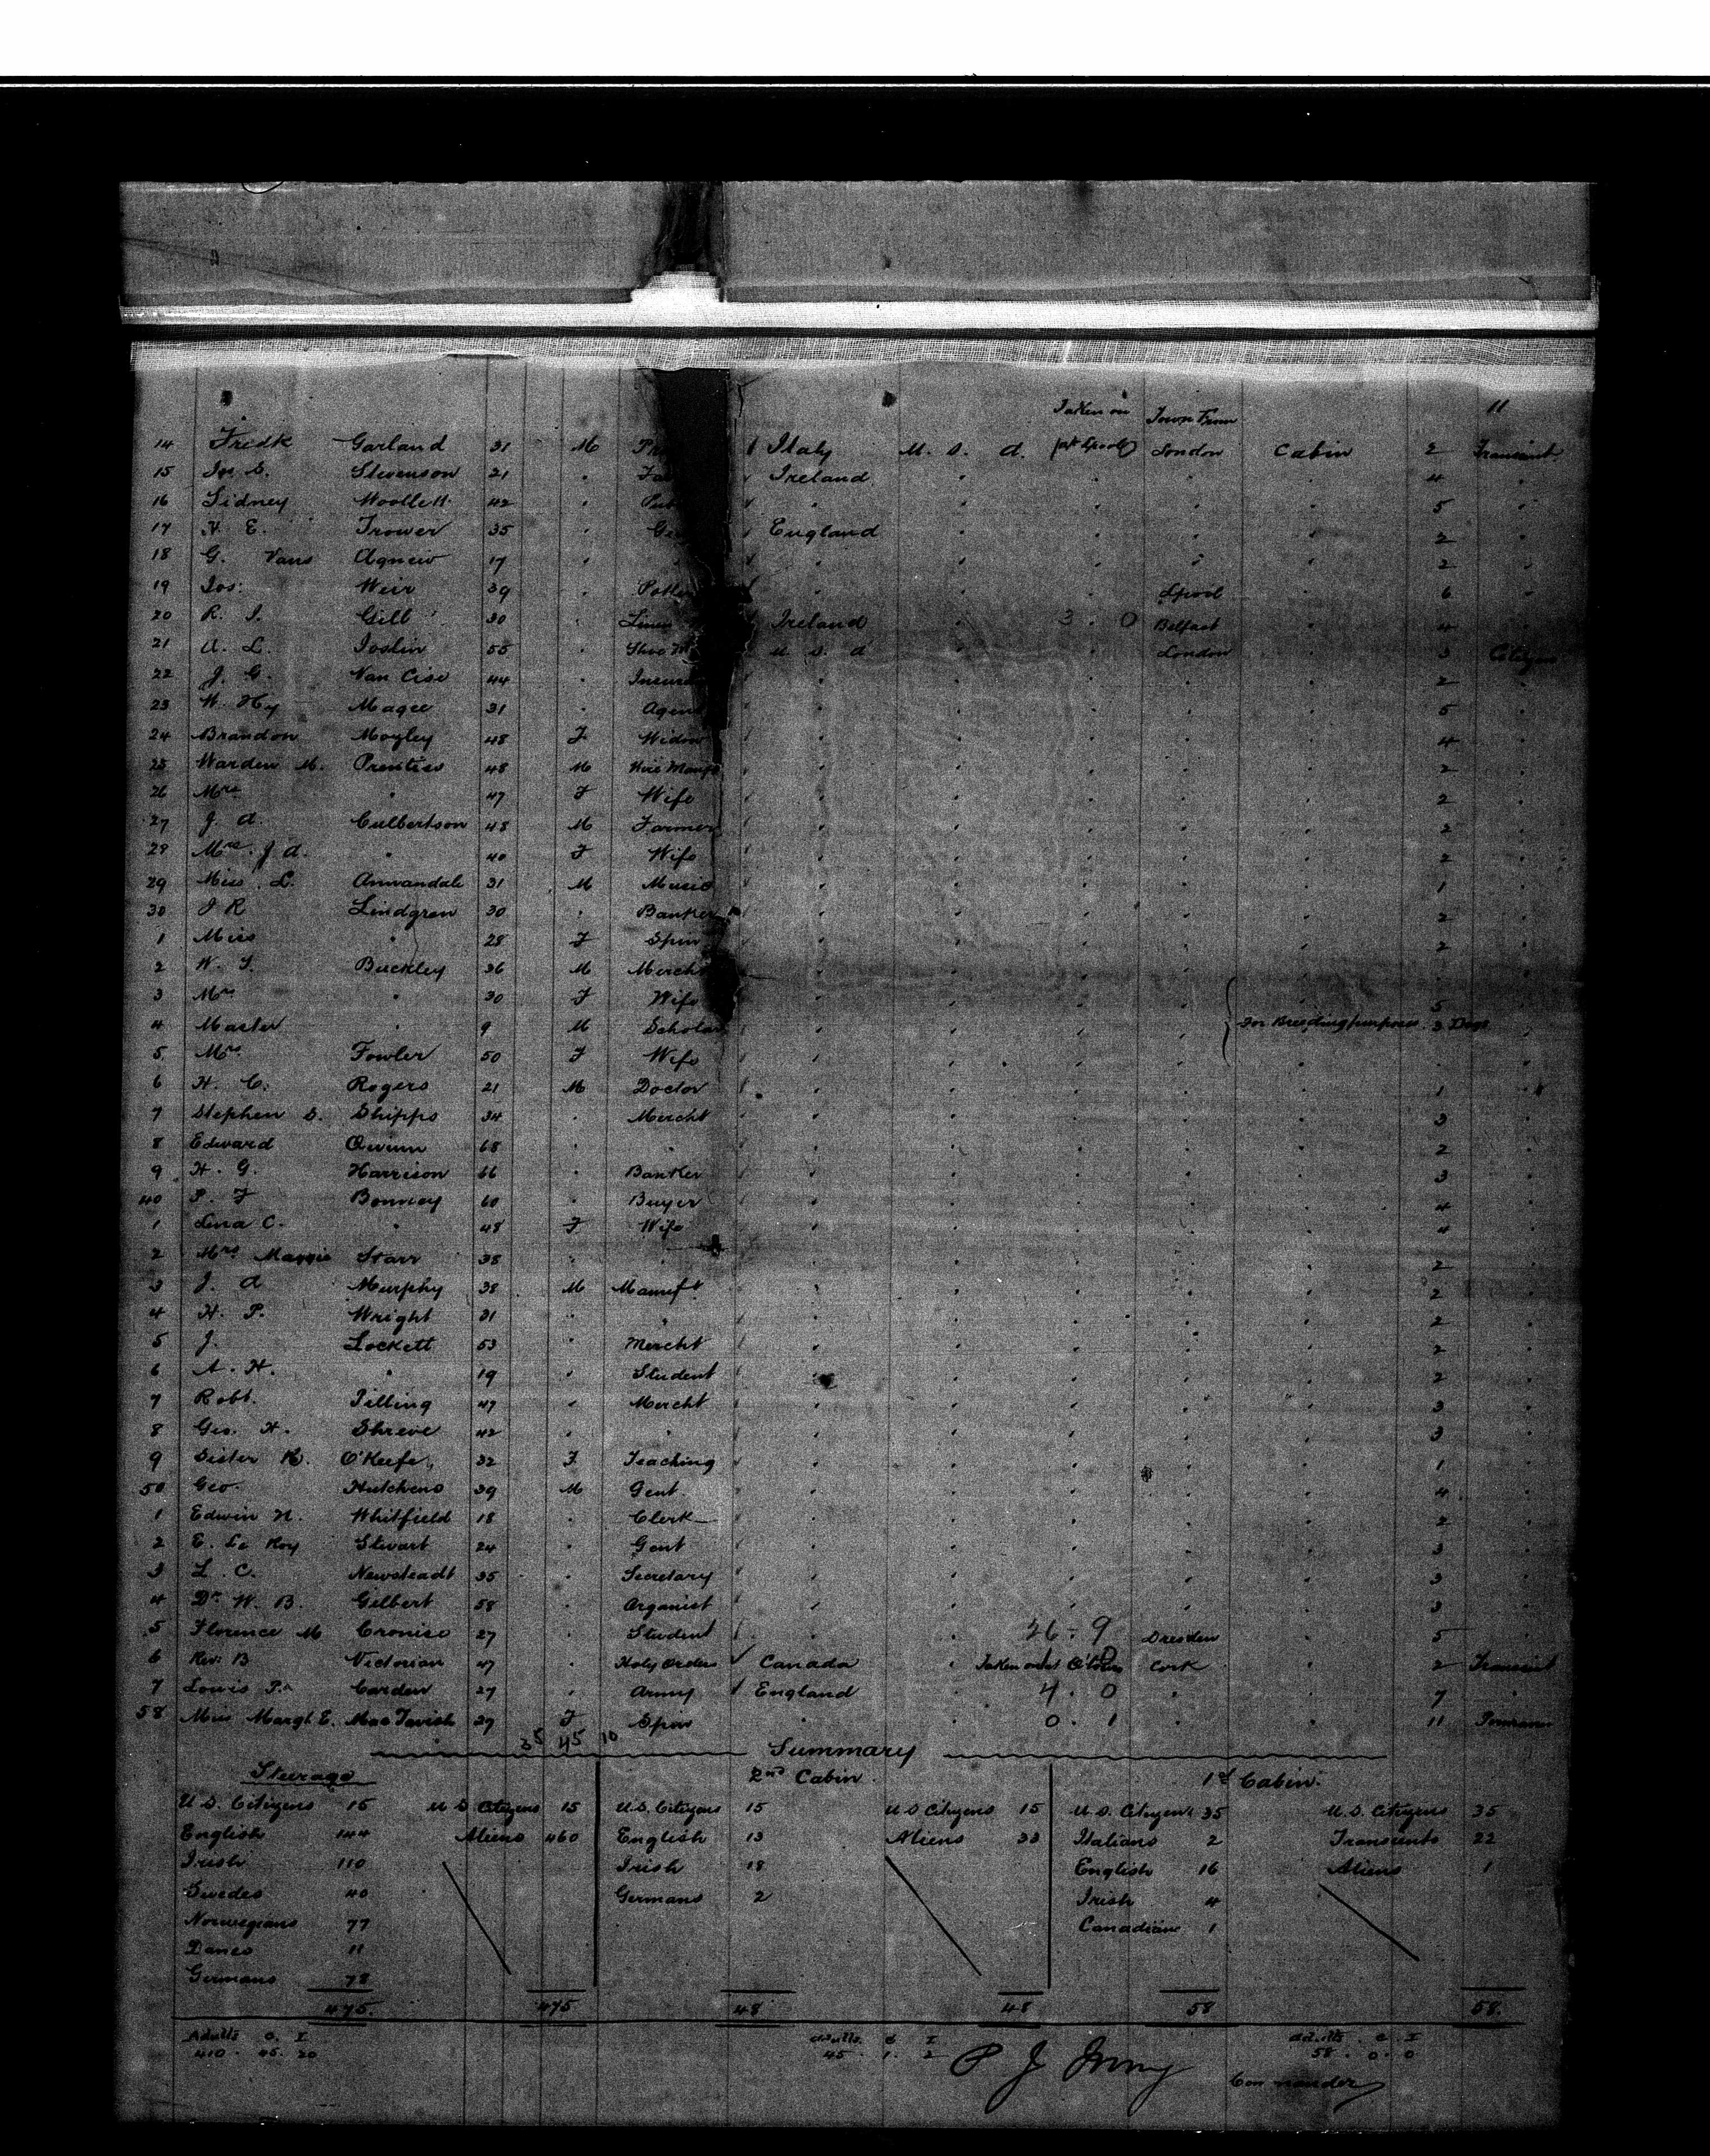 11
Taken on Town From
14 Fredk Garland 31 M Italy U. S. A. London Cabin 2 Transient
15 Stevenson 21 " Ireland " " " " 4 "
16 Sidney Woollett 42 " " " " " " 5 "
17 H. E. Trower 35 " England " " " " 2 "
18 G. Vans Agnew 17 " " " " " " 2 "
19 Jos: Weir 39 " " " " L'pool " 6 "
20 Gill 30 " Linen Ireland " 3 . 0 Belfast " 4 "
21 A. L. Joslin 55 " U S A " " London " 3 Citizen
22 J. G. Van Cise 44 " " " " " " 2 "
23 W. Hy Magee 31 " Agent " " " " " 5 "
24 Brandon Mozley 48 F Widow " " " " " 4 "
25 Warden M. Prentiss 48 M Wire Manfr " " " " " 2 "
26 Mrs " 47 F Wife " " " " " 2 "
27 J. A. Culbertson 48 M Farmer " " " " " 2 "
28 Mrs. J. A. " 40 F Wife " " " " " 2 "
29 Miss L. Annandale 31 M Music " " " " " 1 "
30 J R Lindgren 30 " Banker " " " " " 2 "
1 Miss " 28 F Spin " " " " " 2 "
2 Buckley 36 M Mercht " " " " " " "
3 Mrs " 30 F Wife " " " " " 5 "
4 Master " 9 M Scholar " " " " For Breeding purposes 3 Dogs
5 Mrs Fowler 50 F Wife " " " " " " "
6 H. C. Rogers 21 M Doctor " " " " " 1 "
7 Stephen S. Shipps 34 " Mercht " " " " " 3 "
8 Edward 68 " " " " " " " 2 "
9 H. G. Harrison 66 " Banker " " " " " 3 "
40 P. F Bonney 60 " Buyer " " " " " 4 "
1 Lena C. " 48 F Wife " " " " " 4 "
2 Mrs Maggie Starr 38 " " " " " " " 2 "
3 J. A Murphy 38 M Manuft " " " " " 2 "
4 H. P. Wright 31 " " " " " " " 2 "
5 J. Lockett 53 " Mercht " " " " " 2 "
6 A. H. " 19 " Student " " " " " 2 "
7 Robt. Tilling 47 " Mercht " " " " " 3 "
8 Geo. H. Shreve 42 " " " " " " " 3 "
9 Sister O'Keefe 32 F Teaching " " " " " 1 "
50 Geo. Hutchens 39 M Gent. " " " " " 4 "
1 Edwin H. Whitfield 18 " Clerk " " " " " 2 "
2 E. Le Roy Stewart 24 " Gent " " " " " 3 "
3 L. C. Newsteadt 35 " Secretary " " " " " 3 "
4 Dr W. B. Gilbert 58 " Organist " " " " " 3 "
5 Florence M Cronise 27 " Student " " 26 . 9 Dresden " 5 "
6 Rev: B Victorian 47 " Holy Orders Canada " Cork " 2 Transient
7 Louis P. Carden 27 " Army England " 4 . 0 " " 7 "
58 Miss Margt E. MacTavish 27 F Spin " " 0 . 1 " " 11
35 45 10
Summary
Steerage 2nd Cabin. 1st Cabin.
U S. Citizens 15 U S Citizens 15 U.S. Citizens 15 U S Citizens 15 U. S. Citizens 35 U.S. Citizens 35
English 144 Aliens 460 English 13 Aliens 33 Italians 2 Transients 22
Irish 110 Irish 18 English 16 Aliens 1
Swedes 40 Germans 2 Irish 4
Norwegians 77 Canadians 1
Danes 11
Germans 78
475. 475 48 48 58 58.
Adults C. I Adults. C I Adults. C. I
410. 45. 20 45. 1. 2 58. 0. 0
Commander